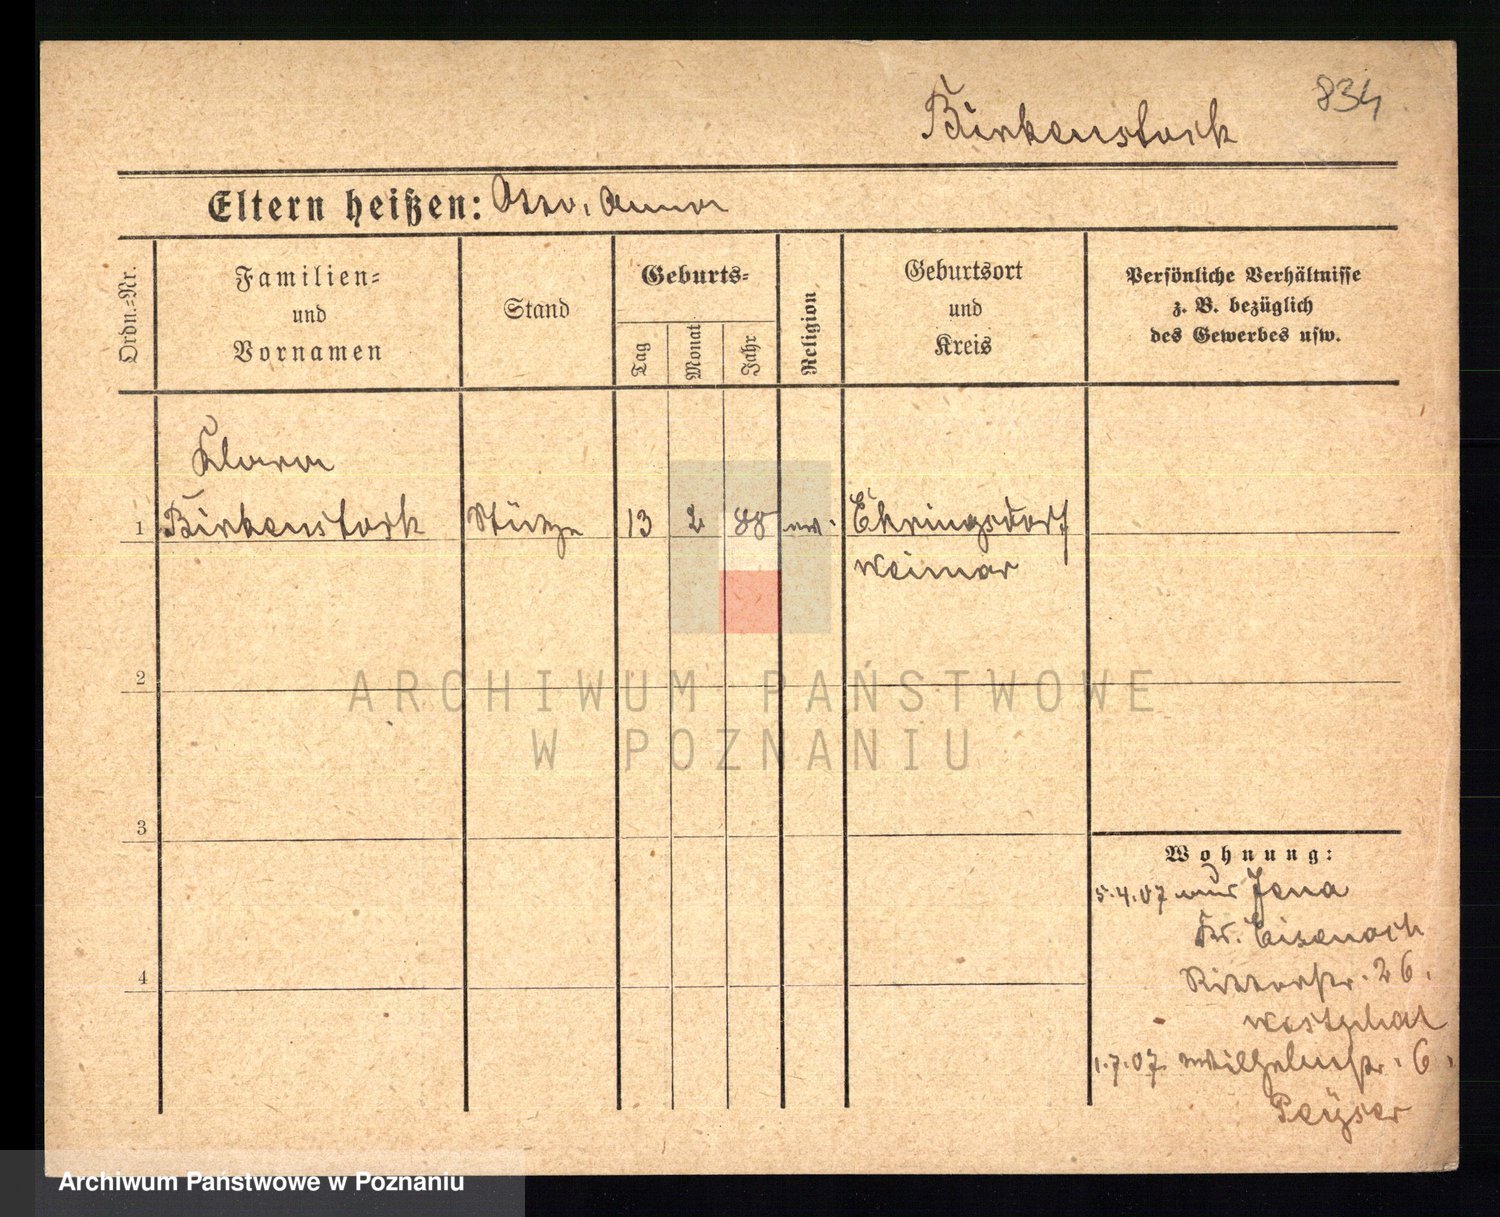 834
Birkenstock
Eltern heißen: Otto, Anna
Ordn.-Nr.
Familien-
und
Vornamen
Stand
Geburts-
Tag
Monat
Jahr
Religion
Geburtsort
und
Kreis
Persönliche Verhältnisse
z. B. bezüglich
des Gewerbes usw.
Klara
1 Birkenstock Stütze 13 2 88 ev. Ehringsdorf
Weimar
2
3
4
Wohnung:
5.4.07 aus Jena
Kr. Eisenach
Ritterstr. 26.
Westphal
1.7.07 Wilhelmstr. 6.
Peyser
ARCHIWUM PAŃSTWOWE
W POZNANIU
Archiwum Państwowe w Poznaniu